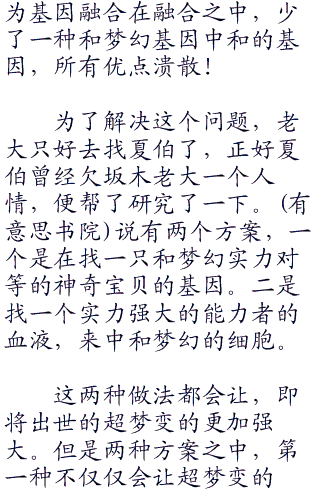 为基因融合在融合之中，少
了一种和梦幻基因中和的基
因，所有优点溃散！
为了解决这个问题，老
大只好去找夏伯了，正好夏
伯曾经欠坂木老大一个人
情，便帮了研究了一下。(有
意思书院)说有两个方案，一
个是在找一只和梦幻实力对
等的神奇宝贝的基因。二是
找一个实力强大的能力者的
血液，来中和梦幻的细胞。
这两种做法都会让，即
将出世的超梦变的更加强
大。但是两种方案之中，第
一种不仅仅会让超梦变的